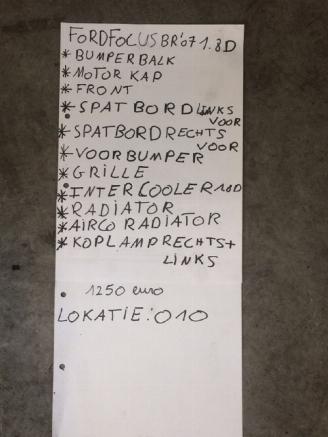 FORDFOCUSBR'07 1.8D
* BUMPERBALK
* MOTOR KAP
* FRONT
* SPATBORD LINKS
VOOR
* SPATBORD RECHTS
VOOR
* VOORBUMPER
* GRILLE
* INTERCOOLER 1.8D
* RADIATOR
* AIRCO RADIATOR
* KOPLAMP RECHTS+
LINKS
1250 euro
LOKATIE:010